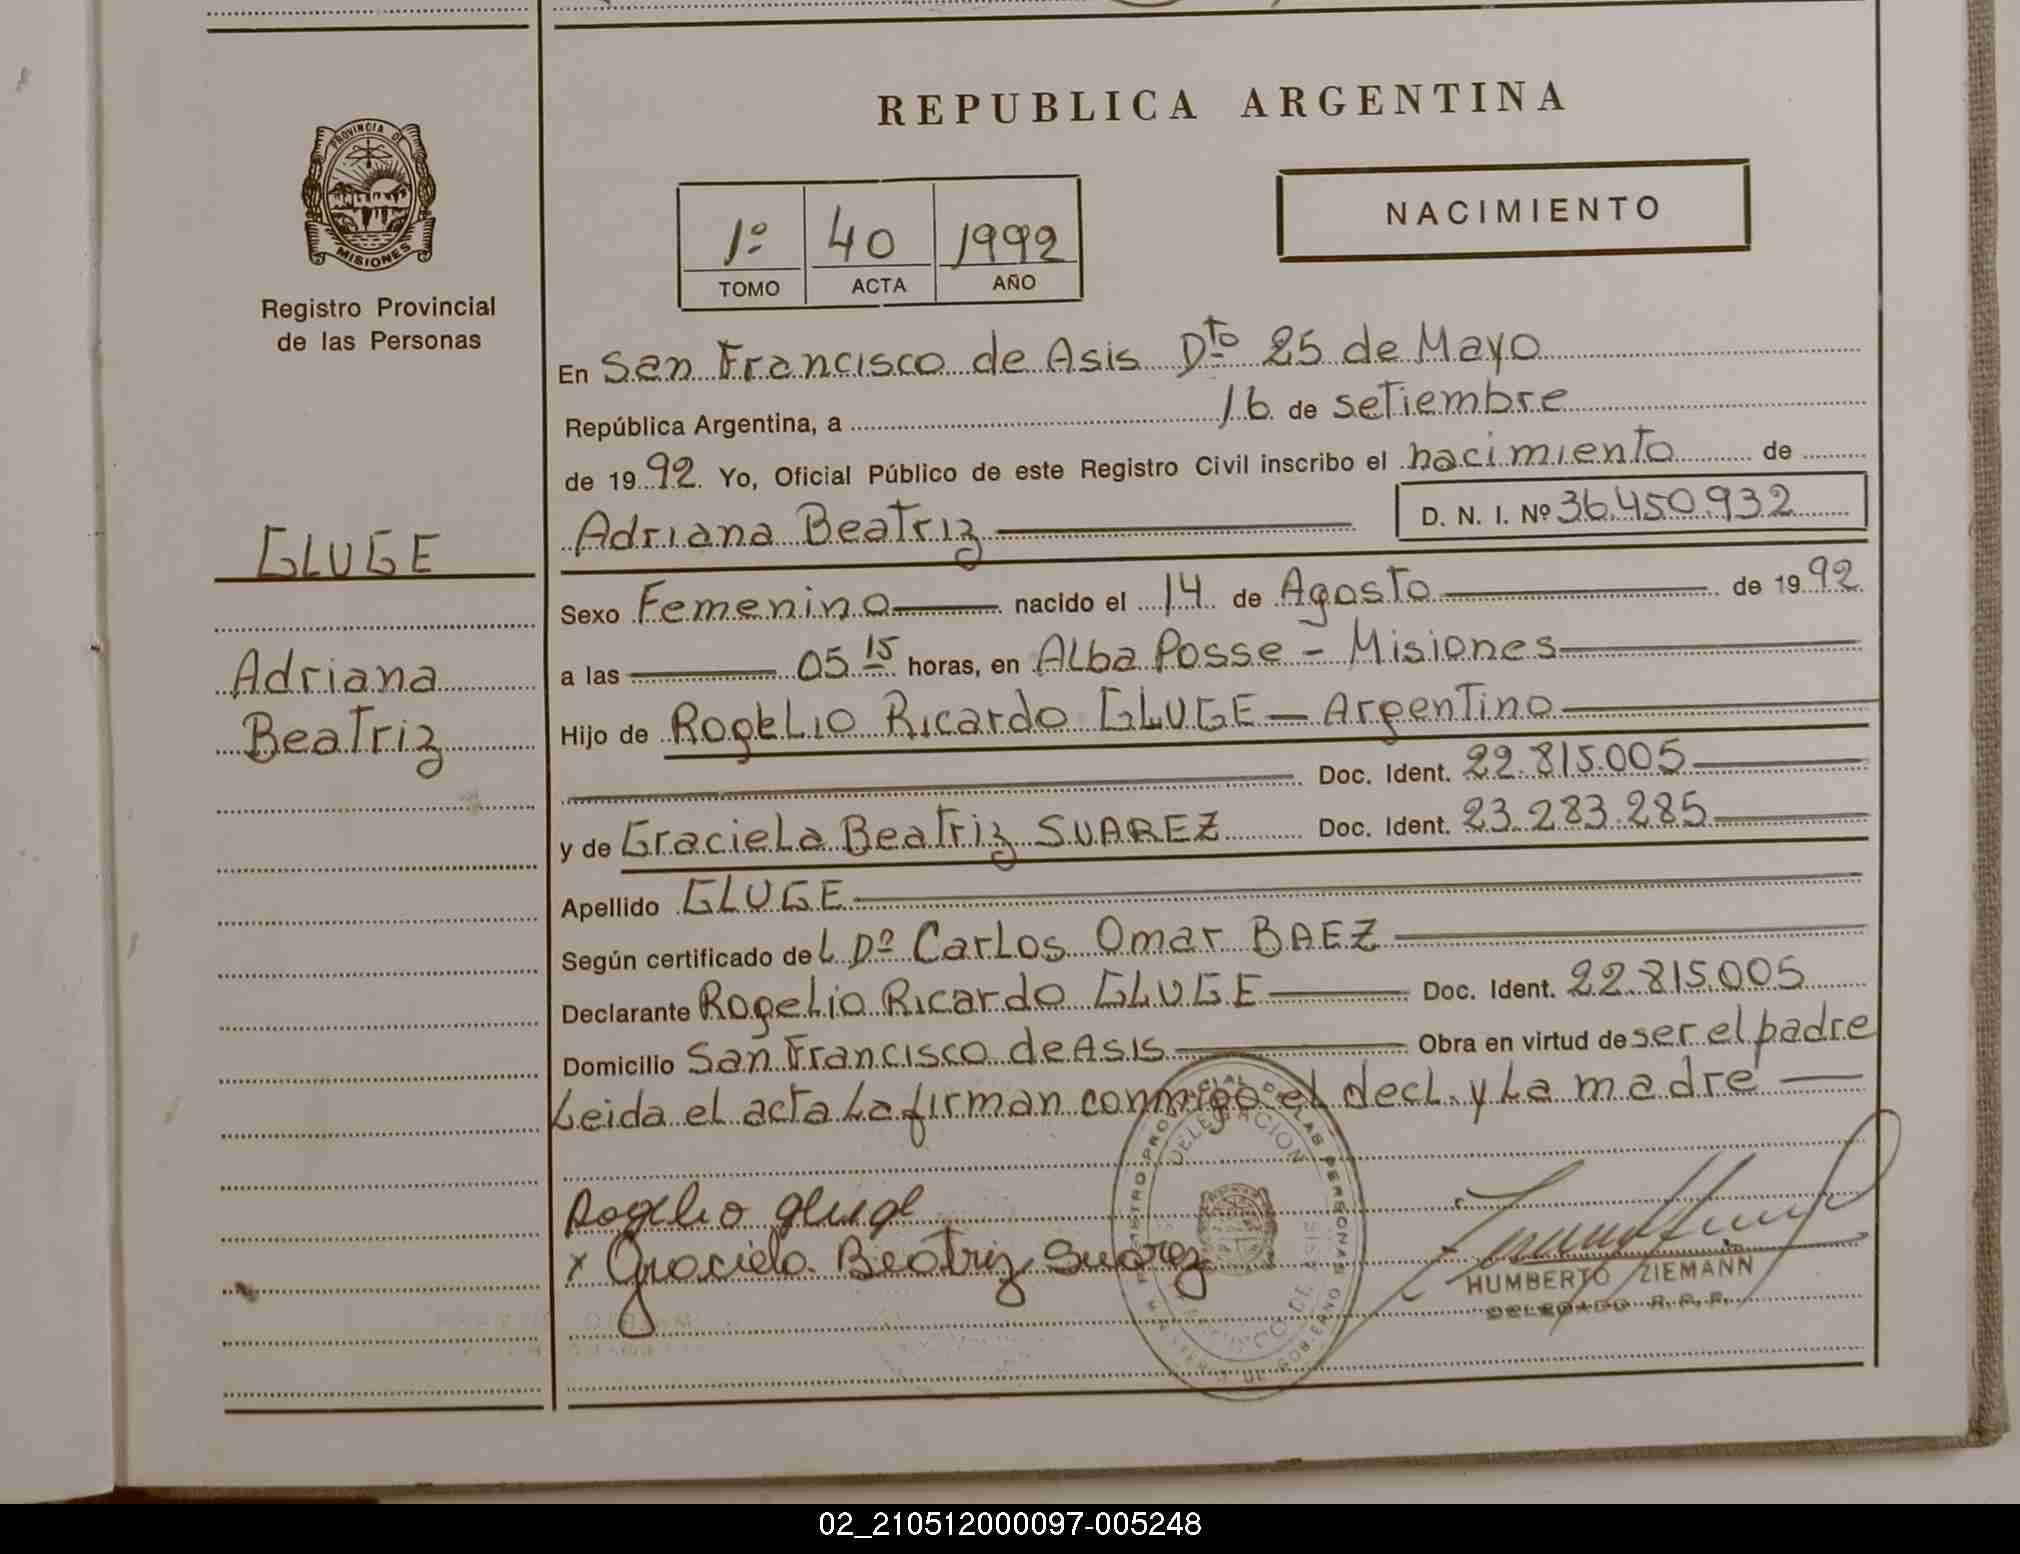 REPUBLICA ARGENTINA
PROVINCIA DE
MISIONES
Registro Provincial
de las Personas
1º 40 1992
TOMO ACTA AÑO
NACIMIENTO
En San Francisco de Asis Dto 25 de Mayo
República Argentina, a 16 de setiembre
de 1992 Yo, Oficial Público de este Registro Civil inscribo el nacimiento de
Adriana Beatriz D. N. I. Nº 36.450.932
GLUGE
Adriana
Beatriz
Sexo Femenino nacido el 14 de Agosto de 1992
a las 05 15 horas, en Alba Posse - Misiones
Hijo de Rogelio Ricardo GLUGE - Argentino
Doc. Ident. 22.815.005
y de Graciela Beatriz SUAREZ Doc. Ident. 23.283.285
Apellido GLUGE
Según certificado de L Dº Carlos Omar BAEZ
Declarante Rogelio Ricardo GLUGE Doc. Ident. 22.815.005
Domicilio San Francisco de Asis Obra en virtud de ser el padre
Leida el acta la firman conmigo el decl. y la madre
Rogelio Gluge
x Graciela Beatriz Suarez
DELEGACION
HUMBERTO ZIEMANN
DELEGADO R. P. P.
02_210512000097-005248